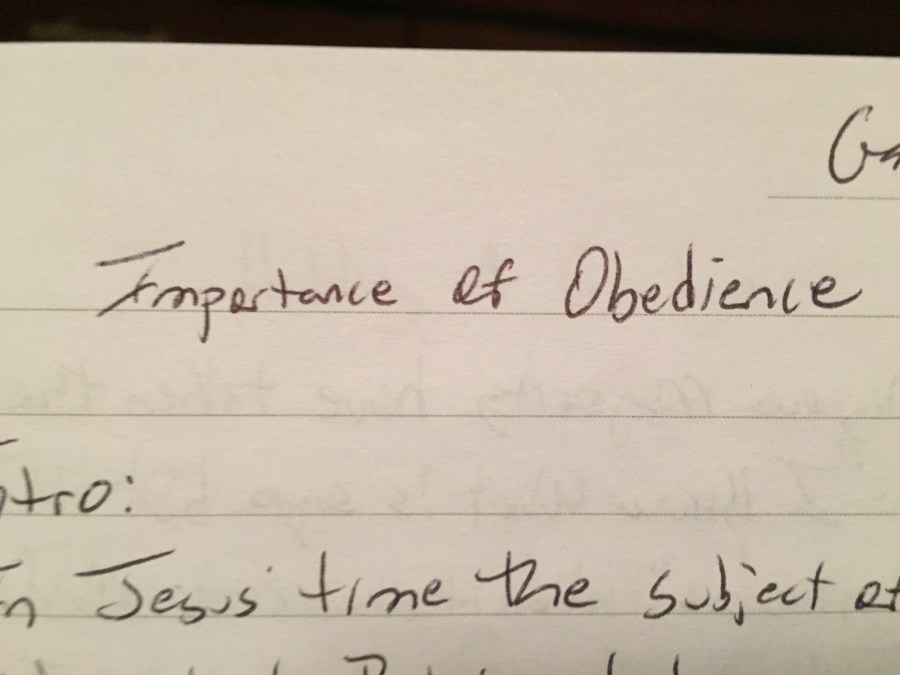 Importance of Obedience
Intro:
In Jesus' time the subject of